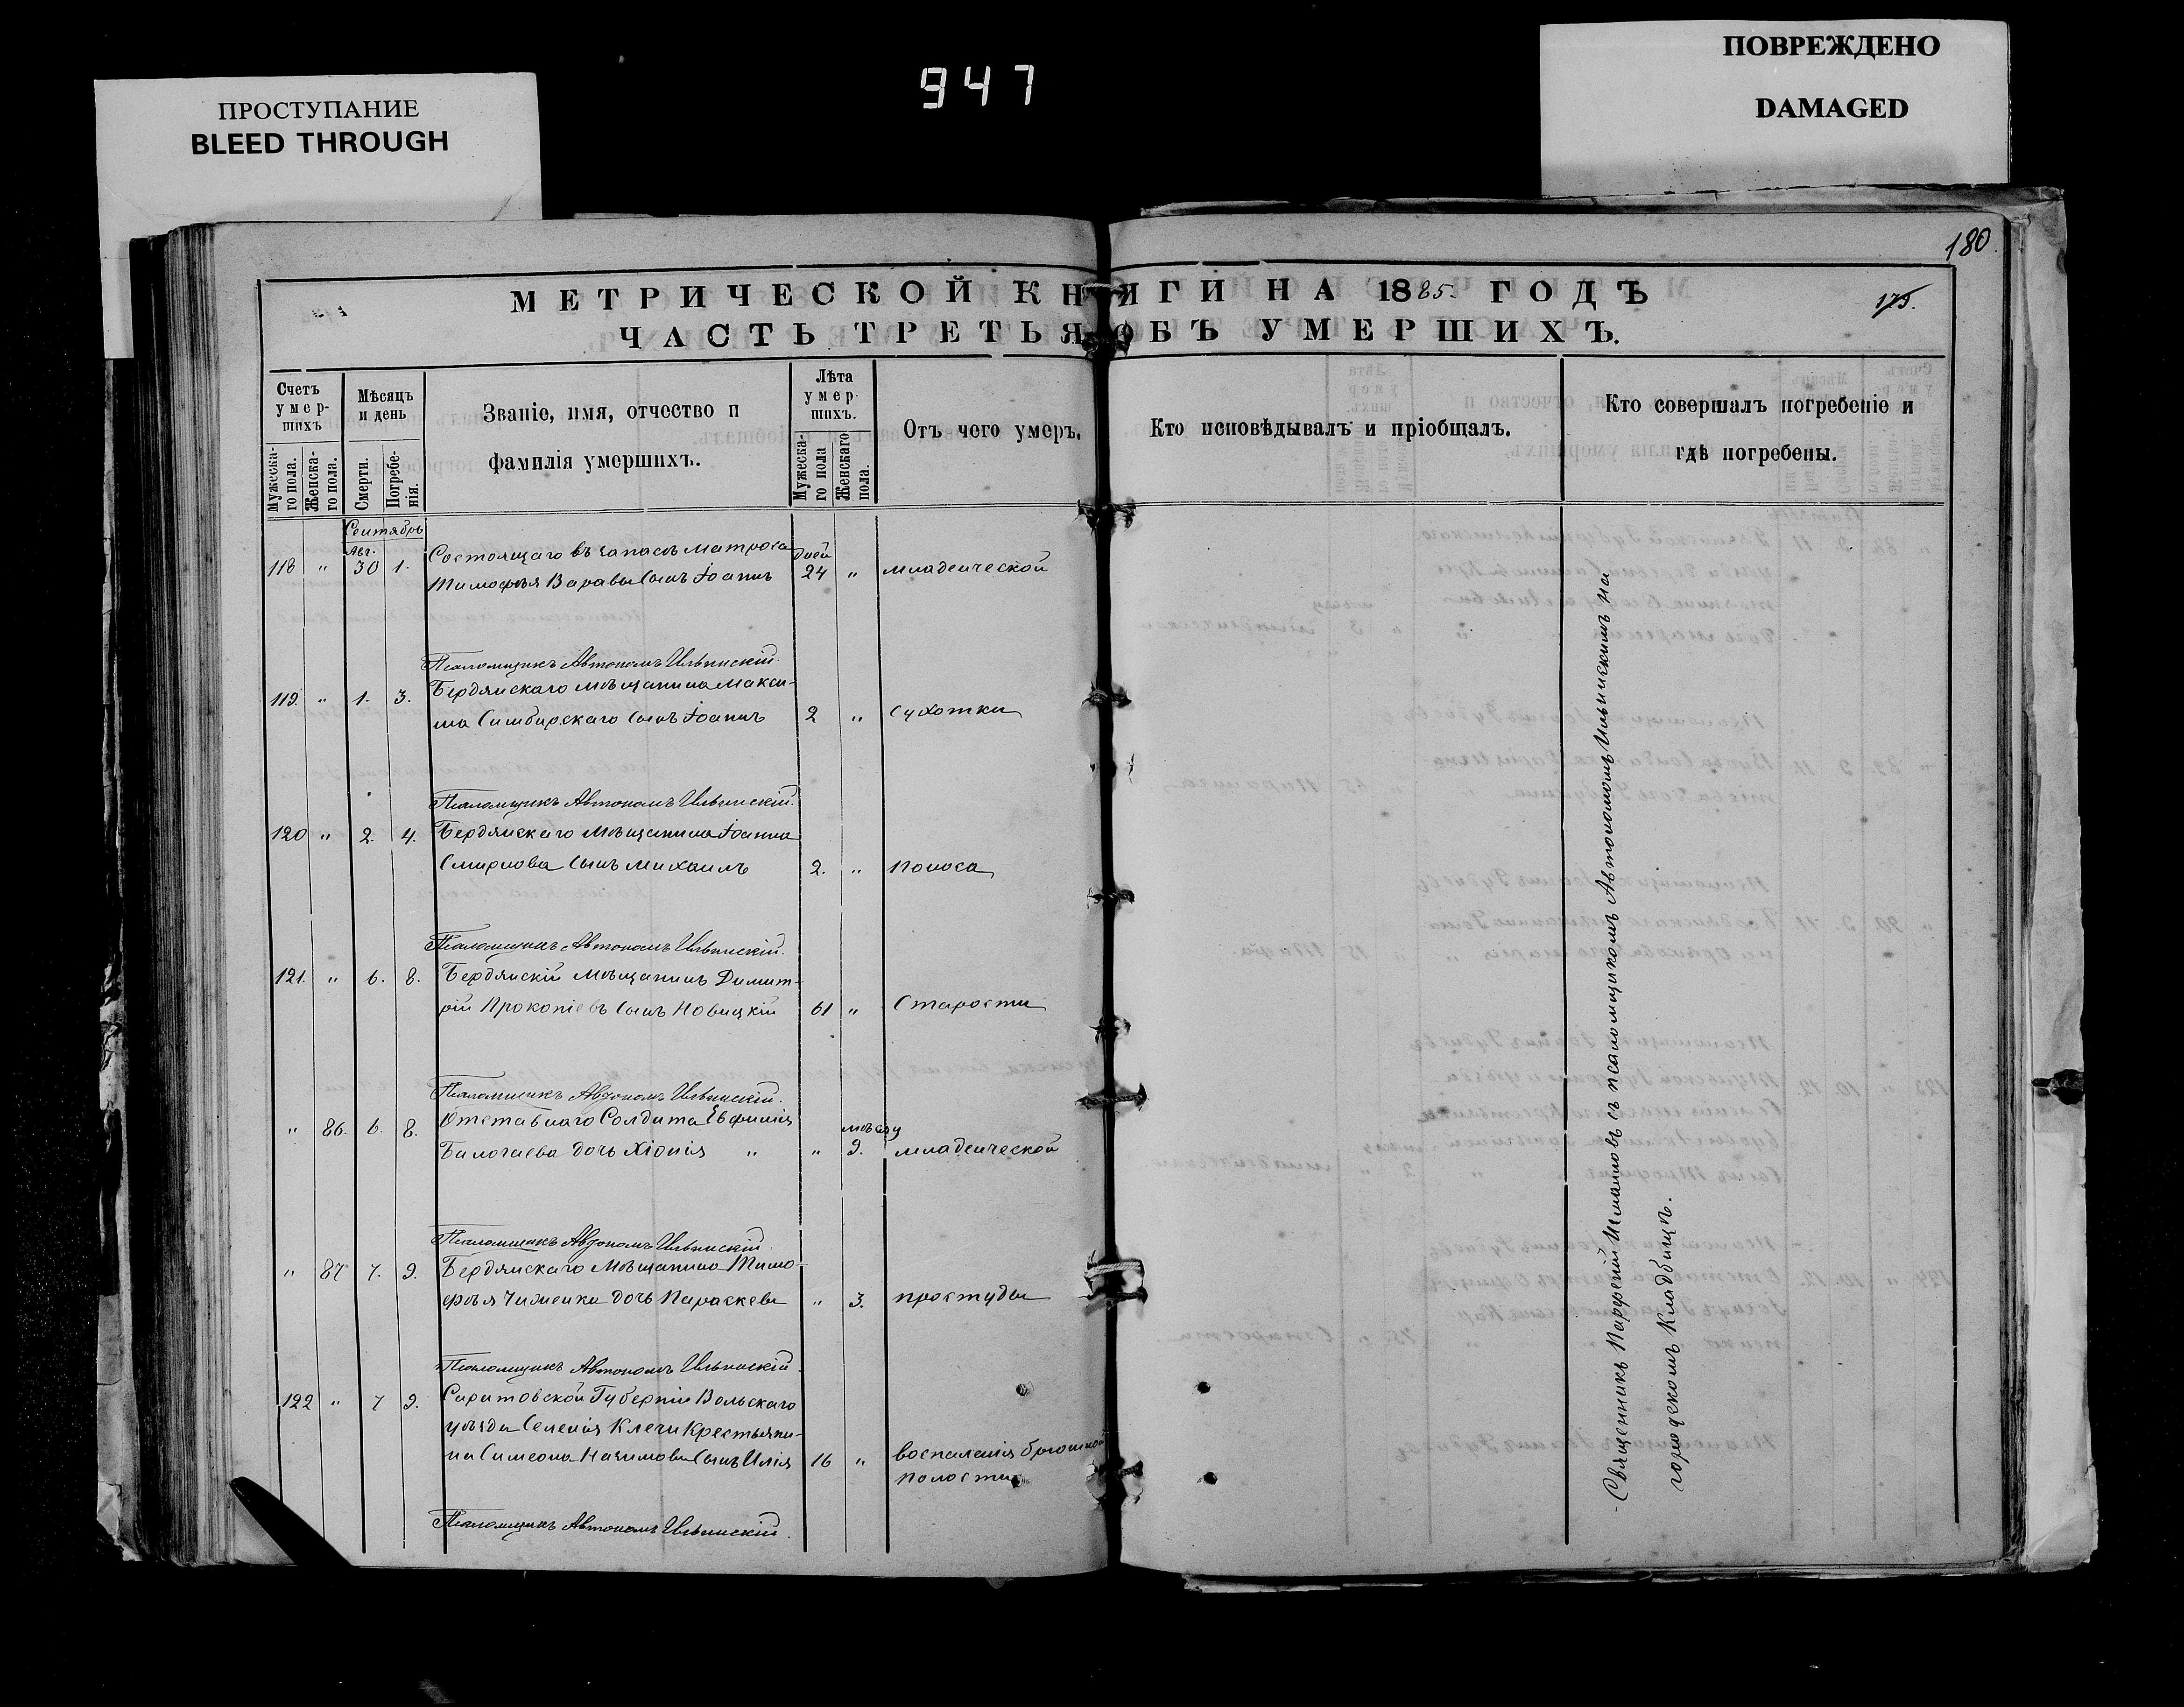 ПРОСТУПАНИЕ
BLEED THROUGH
947
ПОВРЕЖДЕНО
DAMAGED
180
МЕТРИЧЕСКОЙ КНИГИ НА 1885. ГОДЪ
175.
ЧАСТЬ ТРЕТЬЯ ОБЪ УМЕРШИХЪ.
Счетъ умер-шихъ
Мужеска-го пола.
Женска-го пола.
Мѣсяцъ и день
Смерти.
Погребе-нія.
Званіе, имя, отчество и
фамилія умершихъ.
Лѣта умер-шихъ.
Мужеска-го пола
Женскаго пола.
Отъ чего умеръ.
Кто исповѣдывалъ и пріобщалъ.
Кто совершалъ погребеніе и
гдѣ погребены.
Сентябрь
Авг.
118 " 30 1. Состоящаго въ запасѣ матроса дней
Тимоѳея Варавы сынъ Іоаннъ 24 " младенческой
Псаломщикъ Автономъ Ильинскій.
119. " 1. 3. Бердянскаго мѣщанина Макси-
ма Симбирскаго сынъ Іоаннъ 2 " сухотки
Псаломщикъ Автономъ Ильинскій.
120 " 2. 4. Бердянскаго мѣщанина Іоанна
Смирнова сынъ Михаилъ 2. " поноса
Псаломщикъ Автономъ Ильинскій.
121. " 6. 8. Бердянскій мѣщанинъ Димит-
рій Прокопіевъ сынъ Новицкій 61 " Старости
Псаломщикъ Автономъ Ильинскій.
" 86. 6. 8. Отставнаго Солдата Евфимія мѣсяц
дочь Хіонія " " 9. младенческой
Псаломщикъ Автономъ Ильинскій.
" 87 7. 9. Бердянскаго мѣщанина Тимо-
ѳея Чиженка дочь Параскева " 3. простуды
Псаломщикъ Автономъ Ильинскій.
122 " 7 9. Саратовской Губерніи Вольскаго
уѣзда Селенія Ключи Крестьяни-
на Симеона Назимова сынъ Илія 16 " воспаленія брюшной
полости
Псаломщикъ Автономъ Ильинскій.
Священникъ Парѳеній съ псаломщикомъ Автономомъ Ильинскимъ на
городскомъ Кладбищѣ.